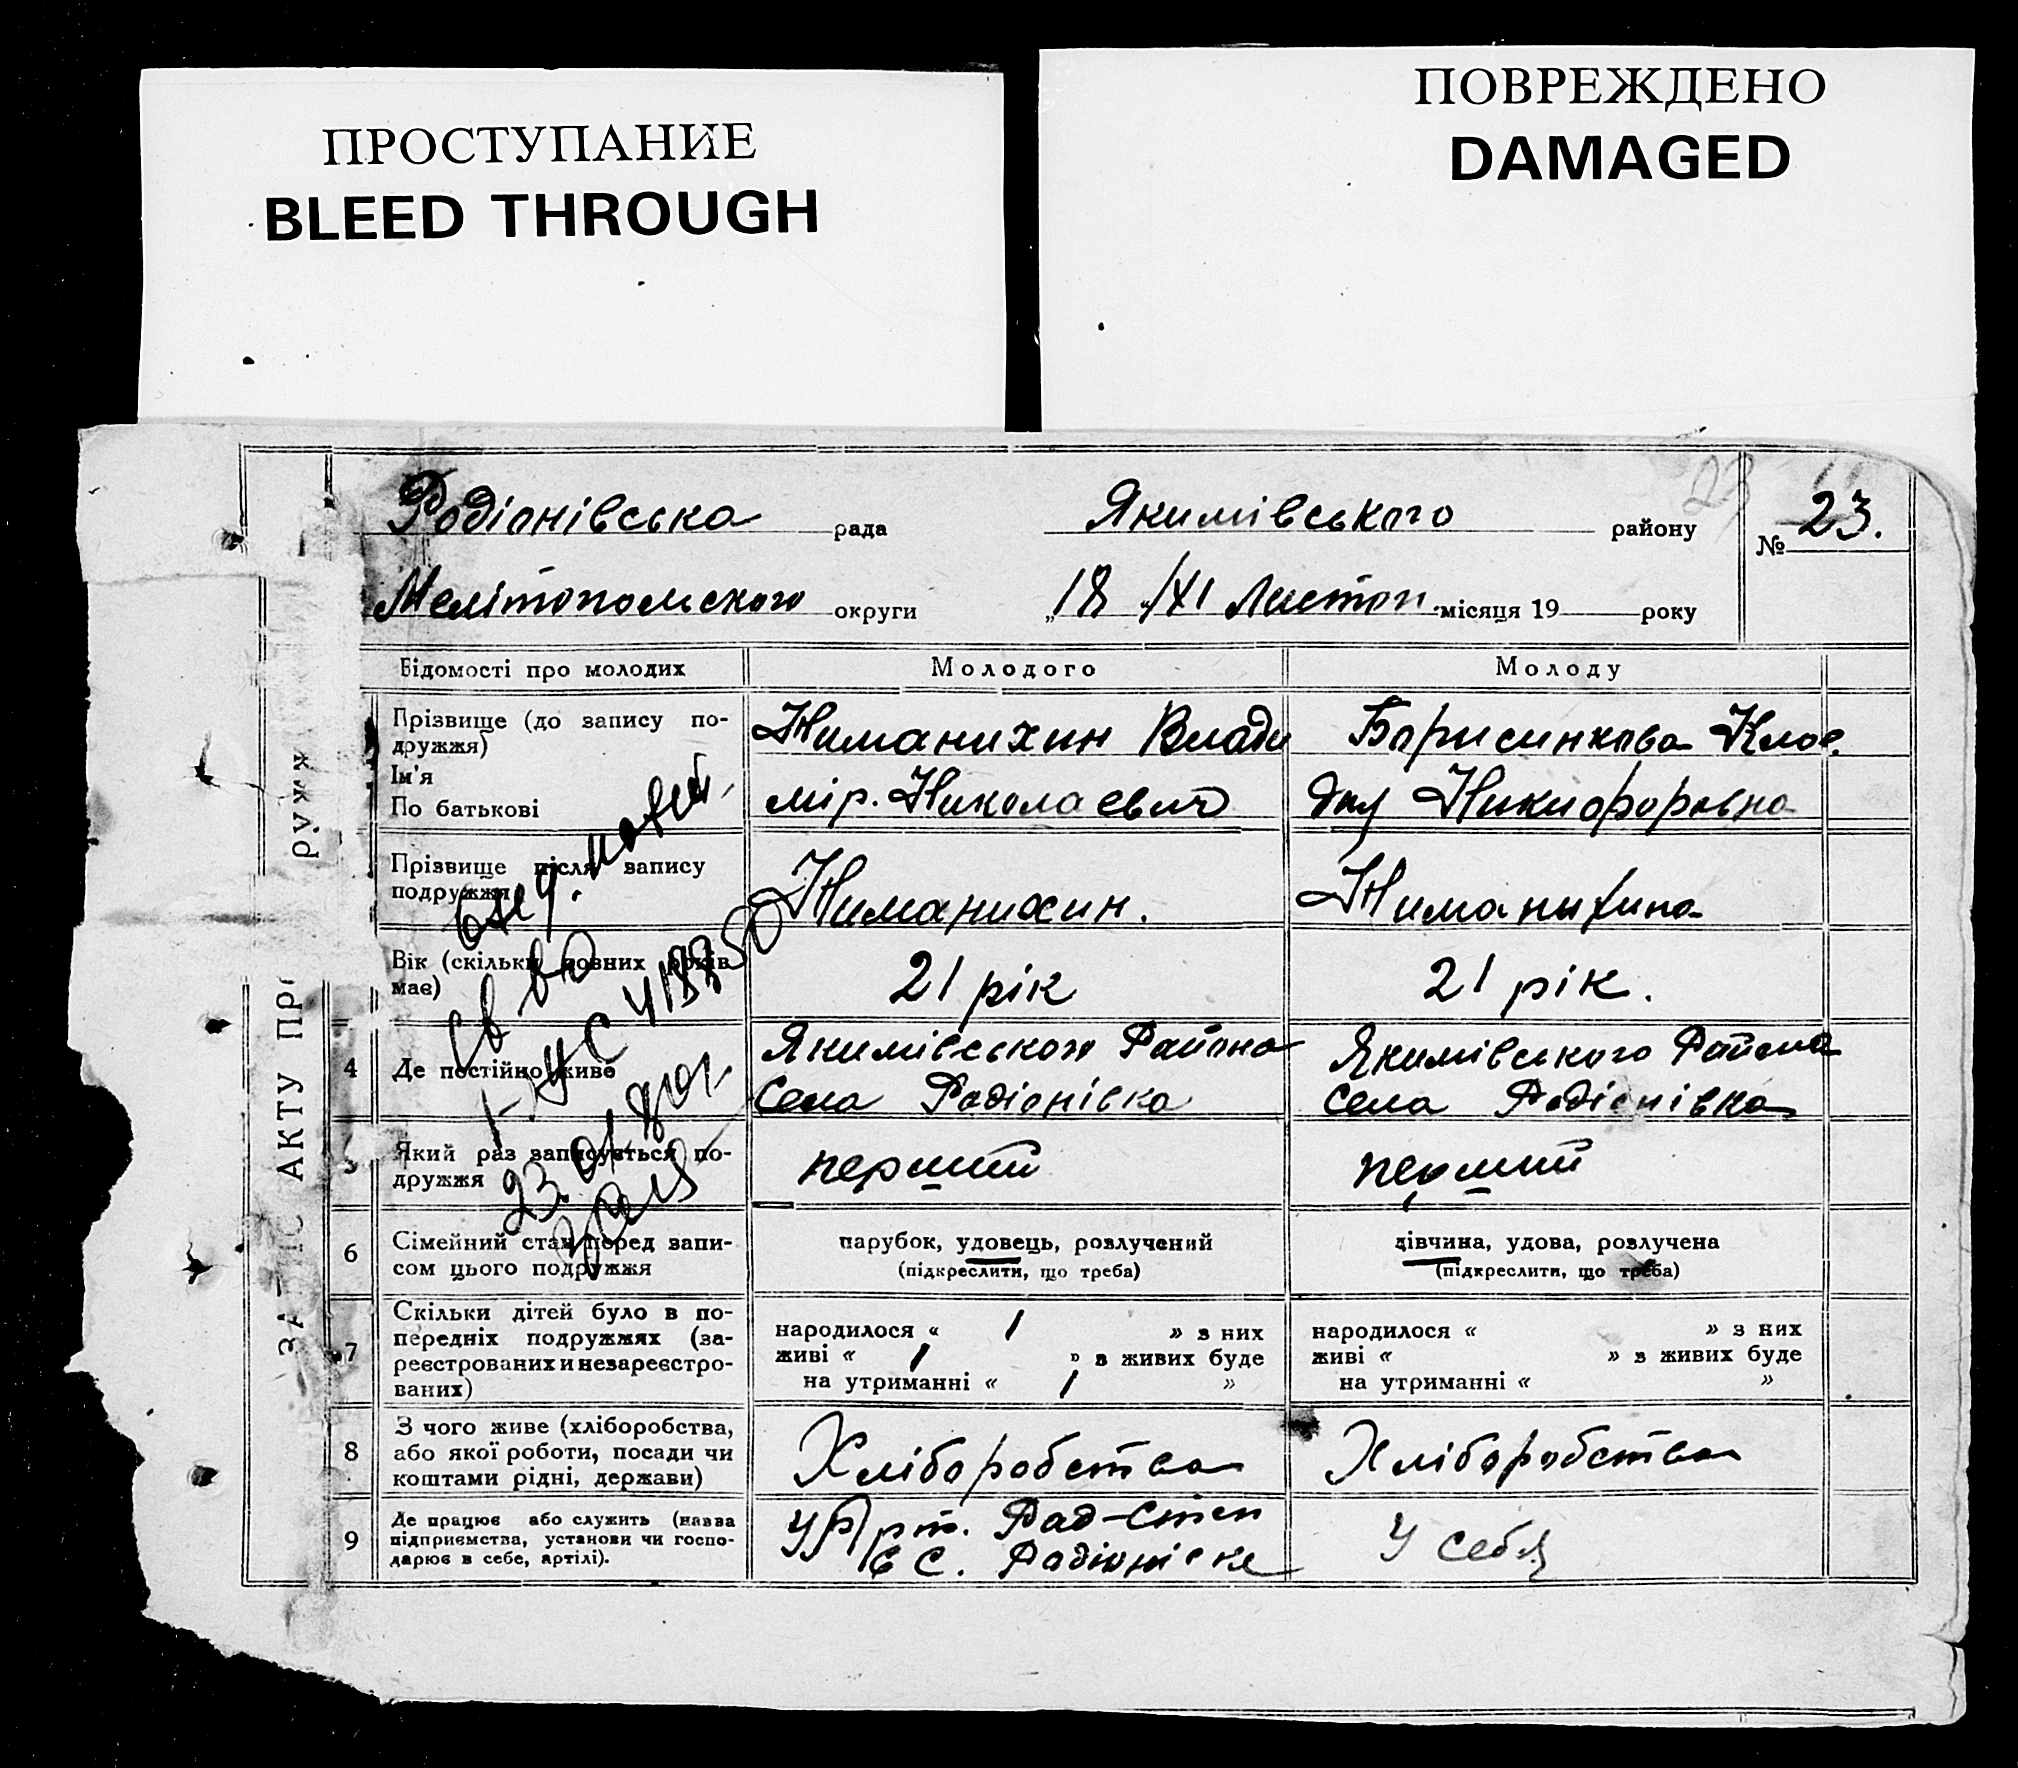 ПРОСТУПАНИЕ
BLEED THROUGH
ПОВРЕЖДЕНО
DAMAGED
Родіонівська рада Якимівського району № 23.
Мелітопольского округи „18 /XI Листоп. місяця 19 року
Відомості про молодих Молодого Молоду
Прізвище (до запису по-
дружжя)
Ім'я
По батькові
Ниманихин Влади
мір. Николаевич
Борисинкова Клав.
дия Никифоровна
Прізвище після запису
подружжя
Ниманихин.
Ниманихина
Вік (скільки повних років
має)
21 рік
21 рік.
4 Де постійно живе
Якимівського Району
Села Родіонівка
Якимівського Району
Села Родіонівка
5 Який раз записується по-
дружжя
перший
перший
6 Сімейний стан перед запи-
сом цього подружжя
парубок, удовець, розлучений
(підкреслити, що треба)
дівчина, удова, розлучена
(підкреслити, що треба)
7 Скільки дітей було в по-
передніх подружжях (за-
реєстрованих и незареєстро-
ваних)
народилося « 1 » з них
живі « 1 » з живих буде
на утриманні « 1 »
народилося « » з них
живі « » з живих буде
на утриманні « »
8 З чого живе (хліборобства,
або якої роботи, посади чи
коштами рідні, держави)
Хліборобства
Хліборобства
9 Де працює або служить (назва
підприємства, установи чи госпо-
дарює в себе, артілі).
У Арт. Рад-Степ
в С. Радіонівке
У себя
ЗАПИС АКТУ ПРО
РУЖЖ